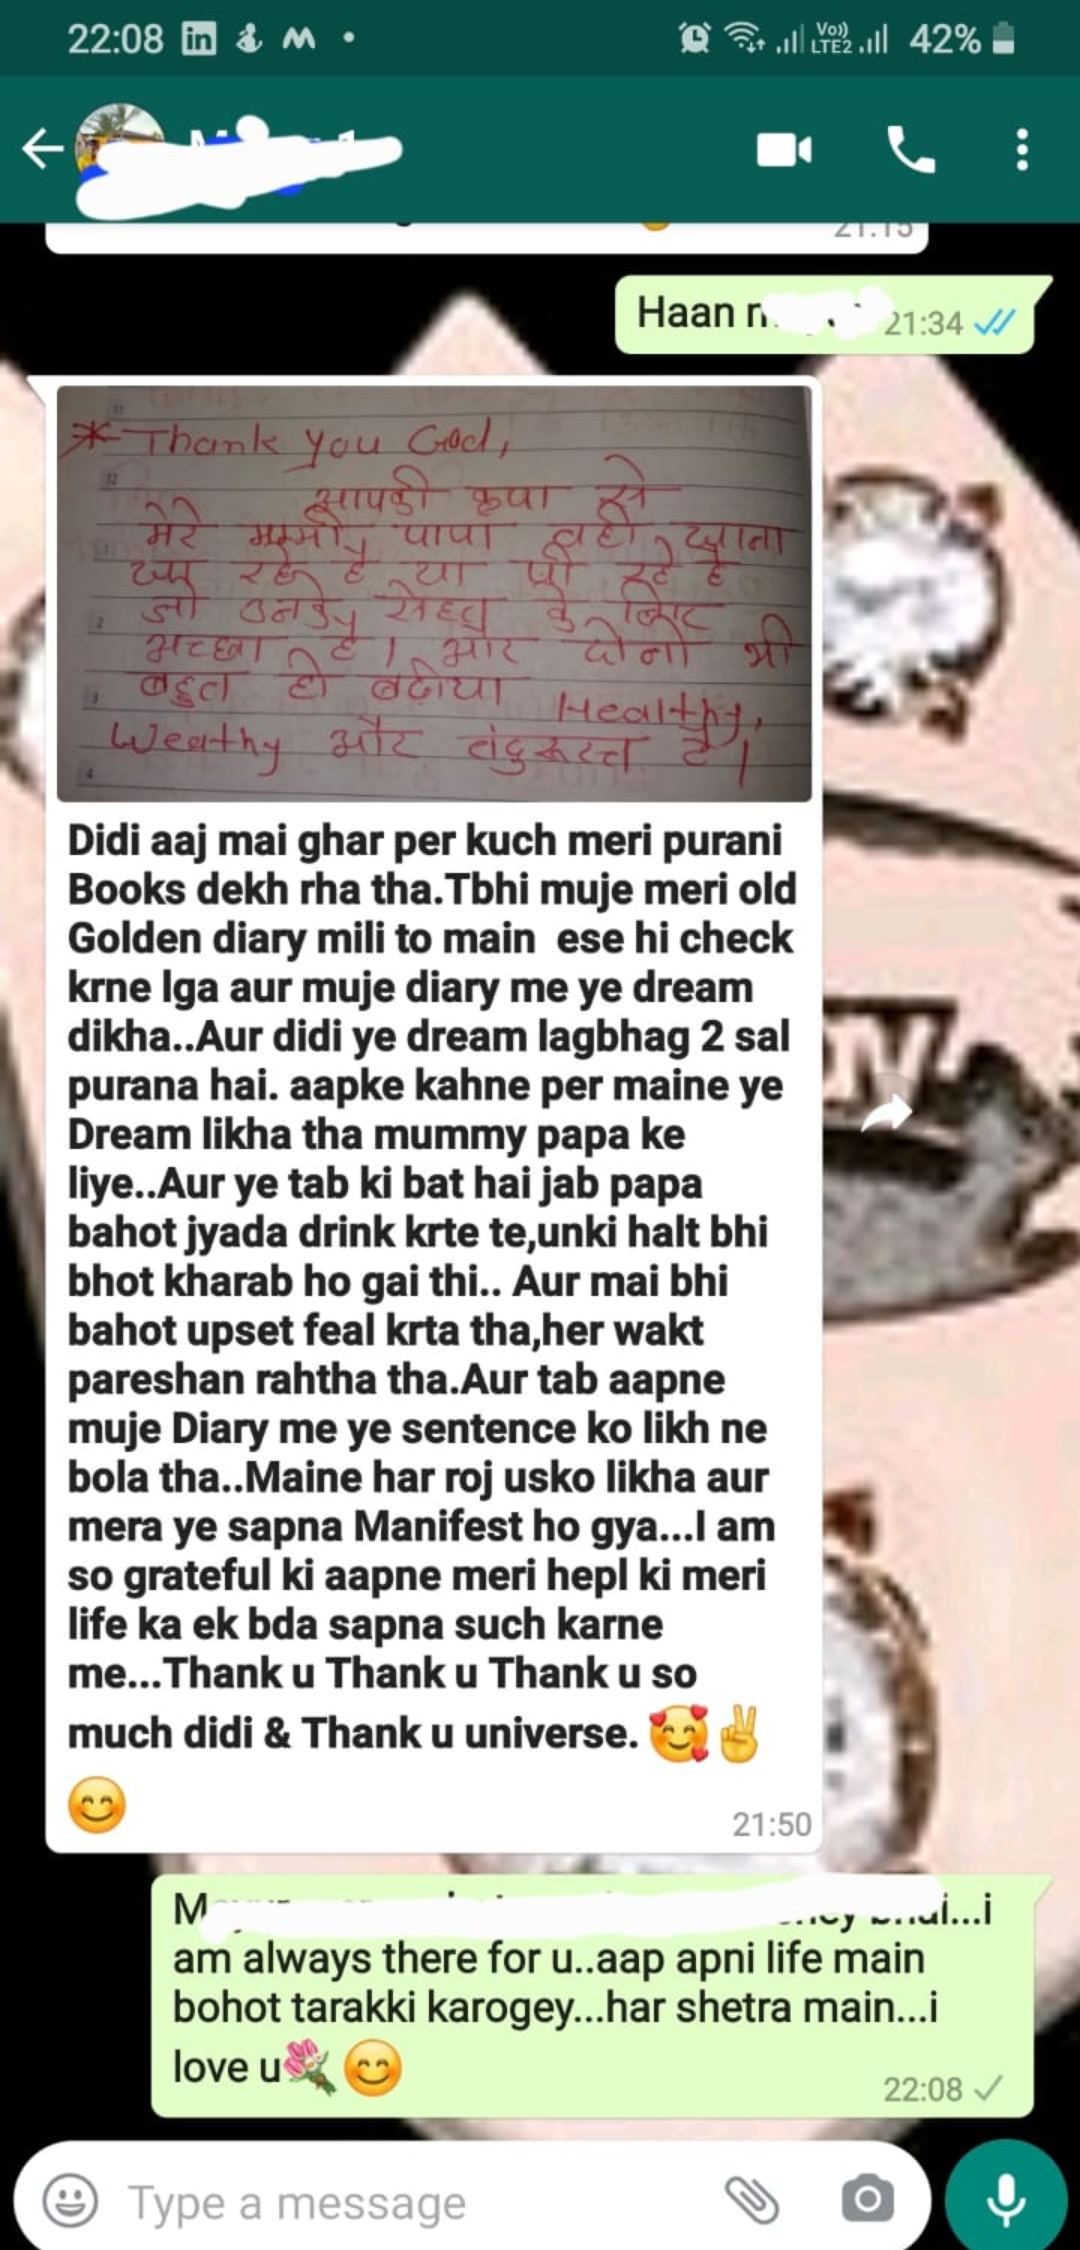 22:08
Vo))
LTE2
42%
21:15
Haan
21:34
*Thank you God,
आपकी कृपा से
मेरे मम्मी, पापा वही खाना
खा रहे है या पी रहे है
जो उनके सेहद के लिए
अच्छा है। और दोनो भी
बहुत ही बढ़ीया Healthy,
Weathy और तंदुरूस्त है।
Didi aaj mai ghar per kuch meri purani
Books dekh rha tha.Tbhi muje meri old
Golden diary mili to main ese hi check
krne lga aur muje diary me ye dream
dikha..Aur didi ye dream lagbhag 2 sal
purana hai. aapke kahne per maine ye
Dream likha tha mummy papa ke
liye..Aur ye tab ki bat hai jab papa
bahot jyada drink krte te,unki halt bhi
bhot kharab ho gai thi.. Aur mai bhi
bahot upset feal krta tha,her wakt
pareshan rahtha tha.Aur tab aapne
muje Diary me ye sentence ko likh ne
bola tha..Maine har roj usko likha aur
mera ye sapna Manifest ho gya...I am
so grateful ki aapne meri hepl ki meri
life ka ek bda sapna such karne
me...Thank u Thank u Thank u so
much didi & Thank u universe. 🥰✌
😊
21:50
...i
am always there for u..aap apni life main
bohot tarakki karogey...har shetra main...i
love u💐😊
22:08
Type a message